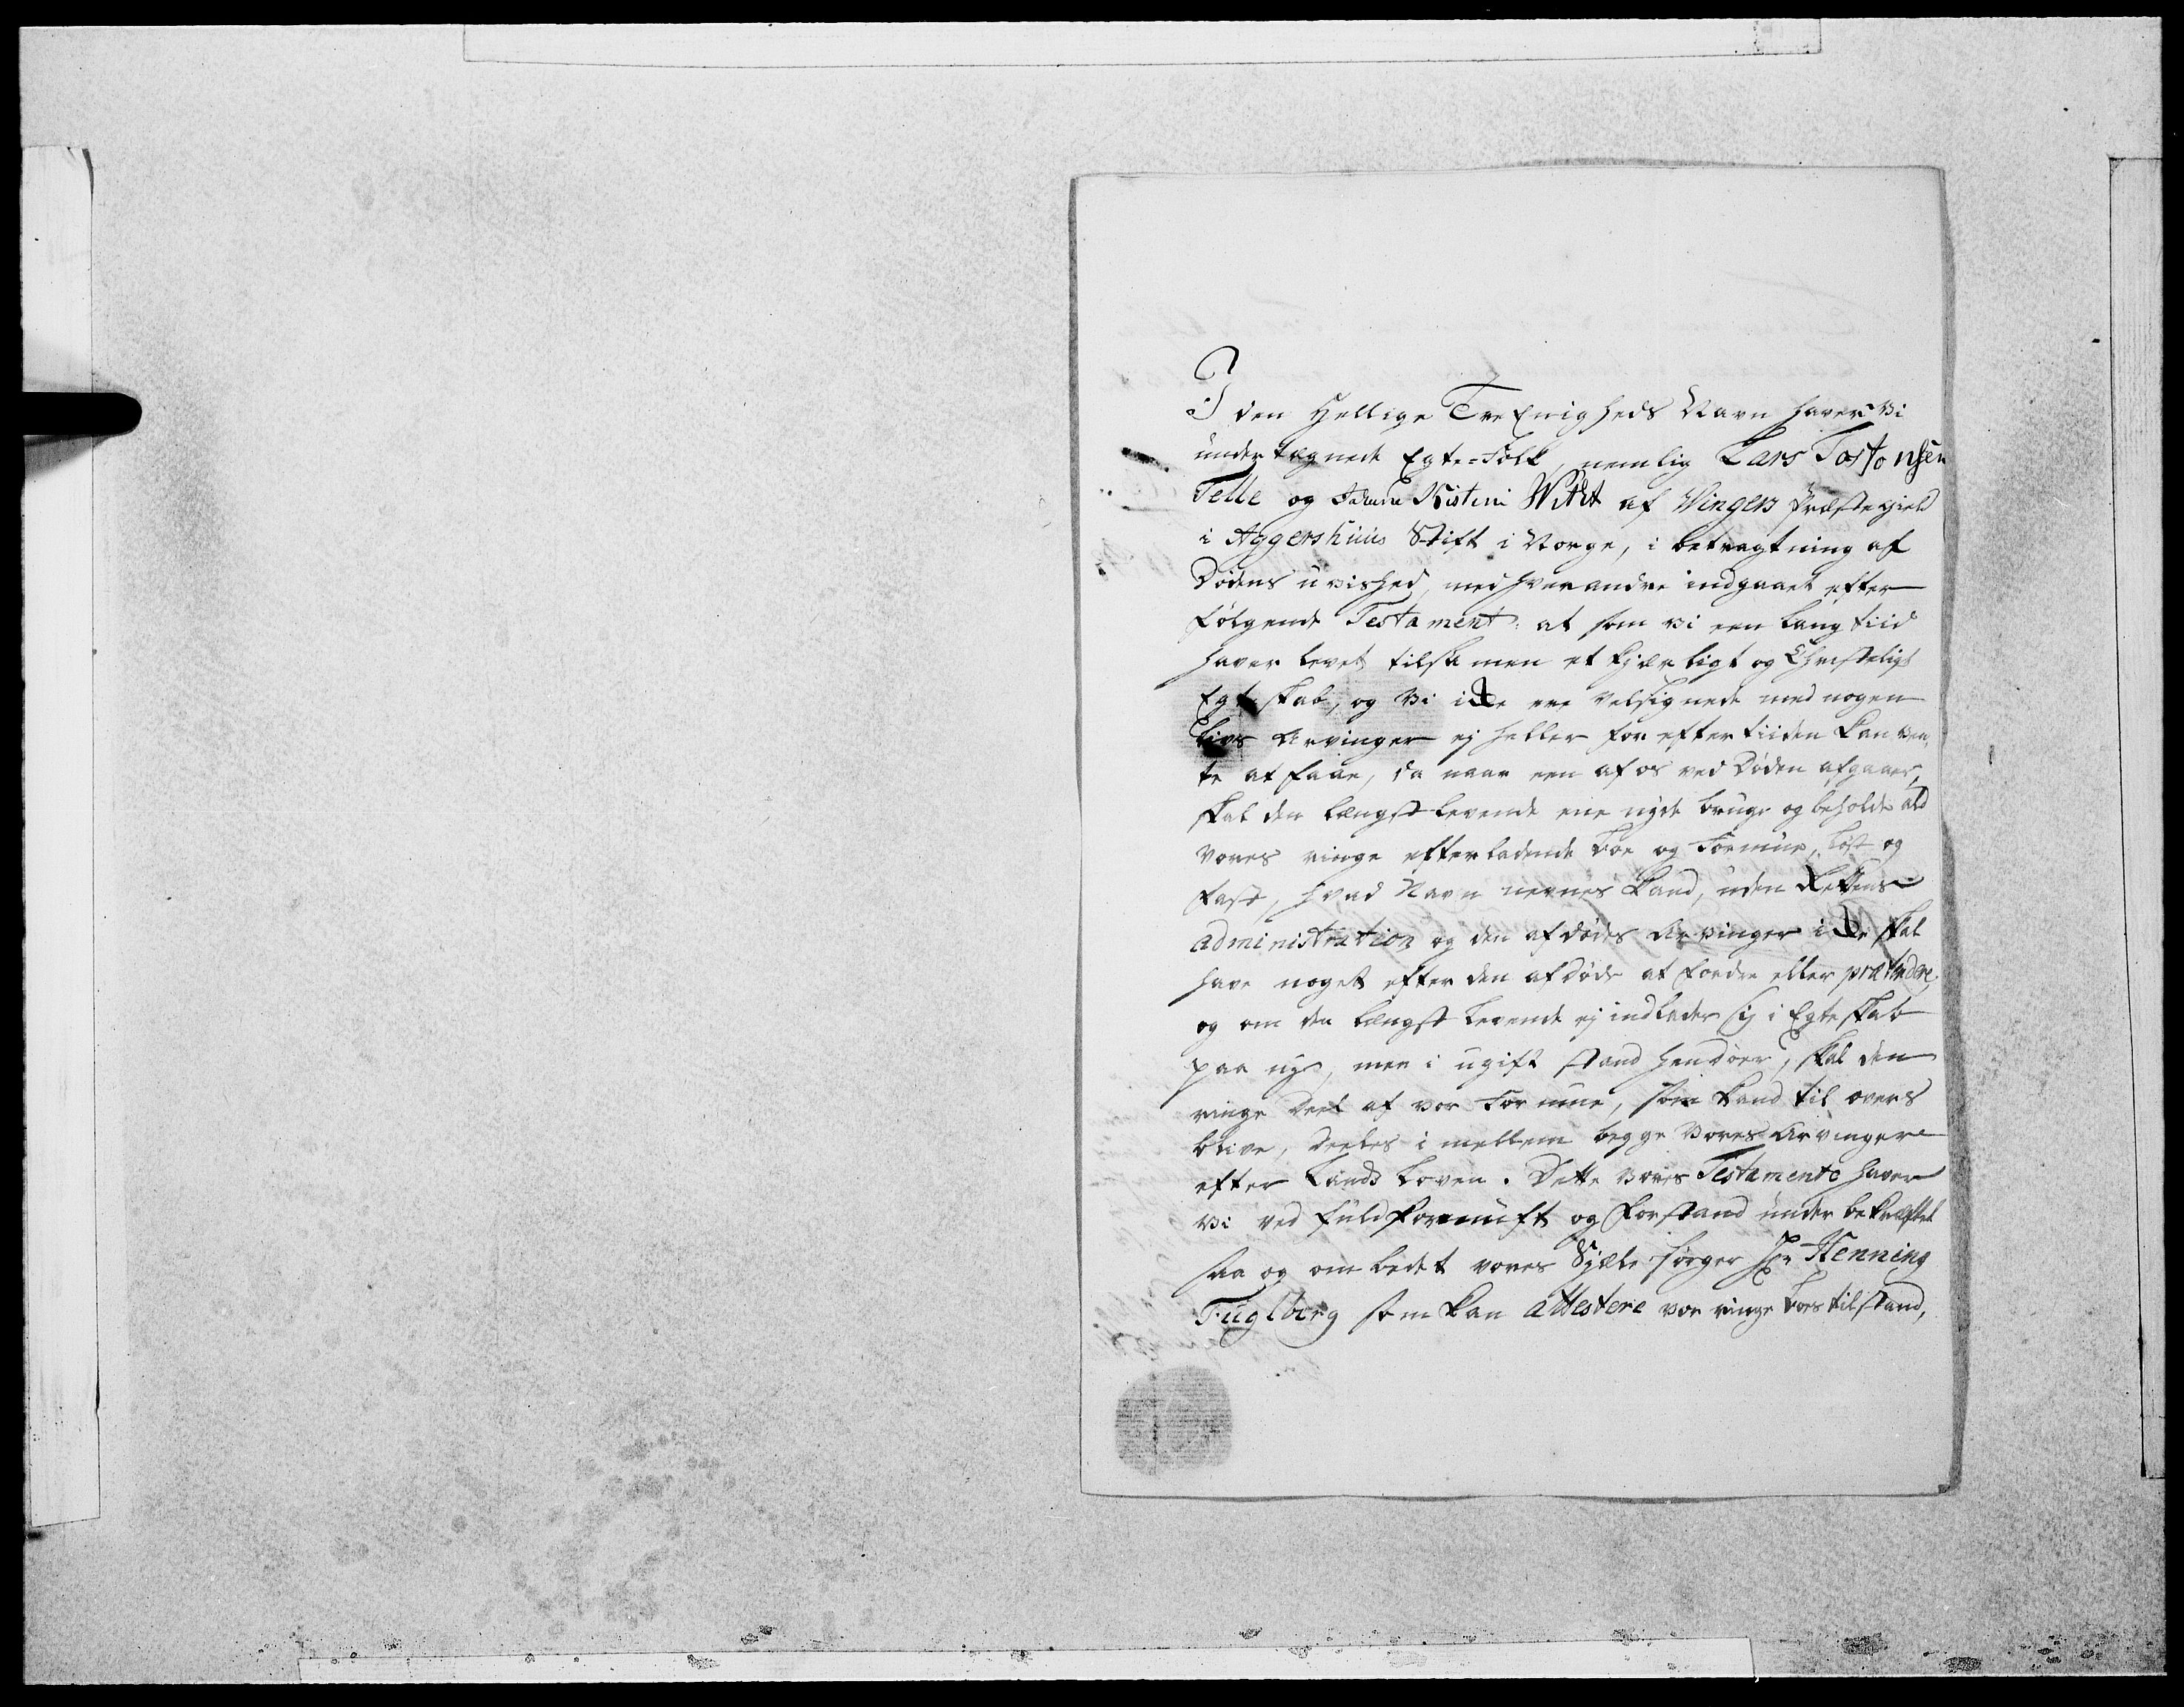 I den Hellige Tre Enigheds Navn haver vi
undertegnede Egte-Folk, nemlig Lars Tostensen
Telle og Kistini Witht af Wingers Præstegield
i Aggershuus Stift i Norge, i betragtning af
Dødens uvished, med hverandre indgaaet efter
følgende Testament: at som vi een lang tiid
haver levet tilsamen et kjærligt og Christeligt
Egteskab, og vi icke ere velsignede med nogen
Livs Arvinger ej heller for eftertiiden kan ven,
te at faae, da naar een af os ved Døden afgaaer,
skal den længst levende ene nyde bruge og beholde ald
vores ringe efterladende Boe og Formue, løst og
fast, hvad Navn nevnes kand, uden Rettens
administration og den afdødes Arvinger icke skal
have noget efter den afdøde at fordre eller prætendere,
og om den længst levende ej indlader sig i Egteskab
paa nye, men i ugift stand hendøer, skal den
ringe Deel af vor Formue, som kand til overs
blive, deeles imellem begge vores Arvinger
efter Lands Loven. Dette vores Testamente haver
vi ved fuld fornuft og forstand under bekræftet
saa og ombedet vores Sjæle sørger Hr Henning
Fuglberg som kan attestere vor ringe boes tilstand,